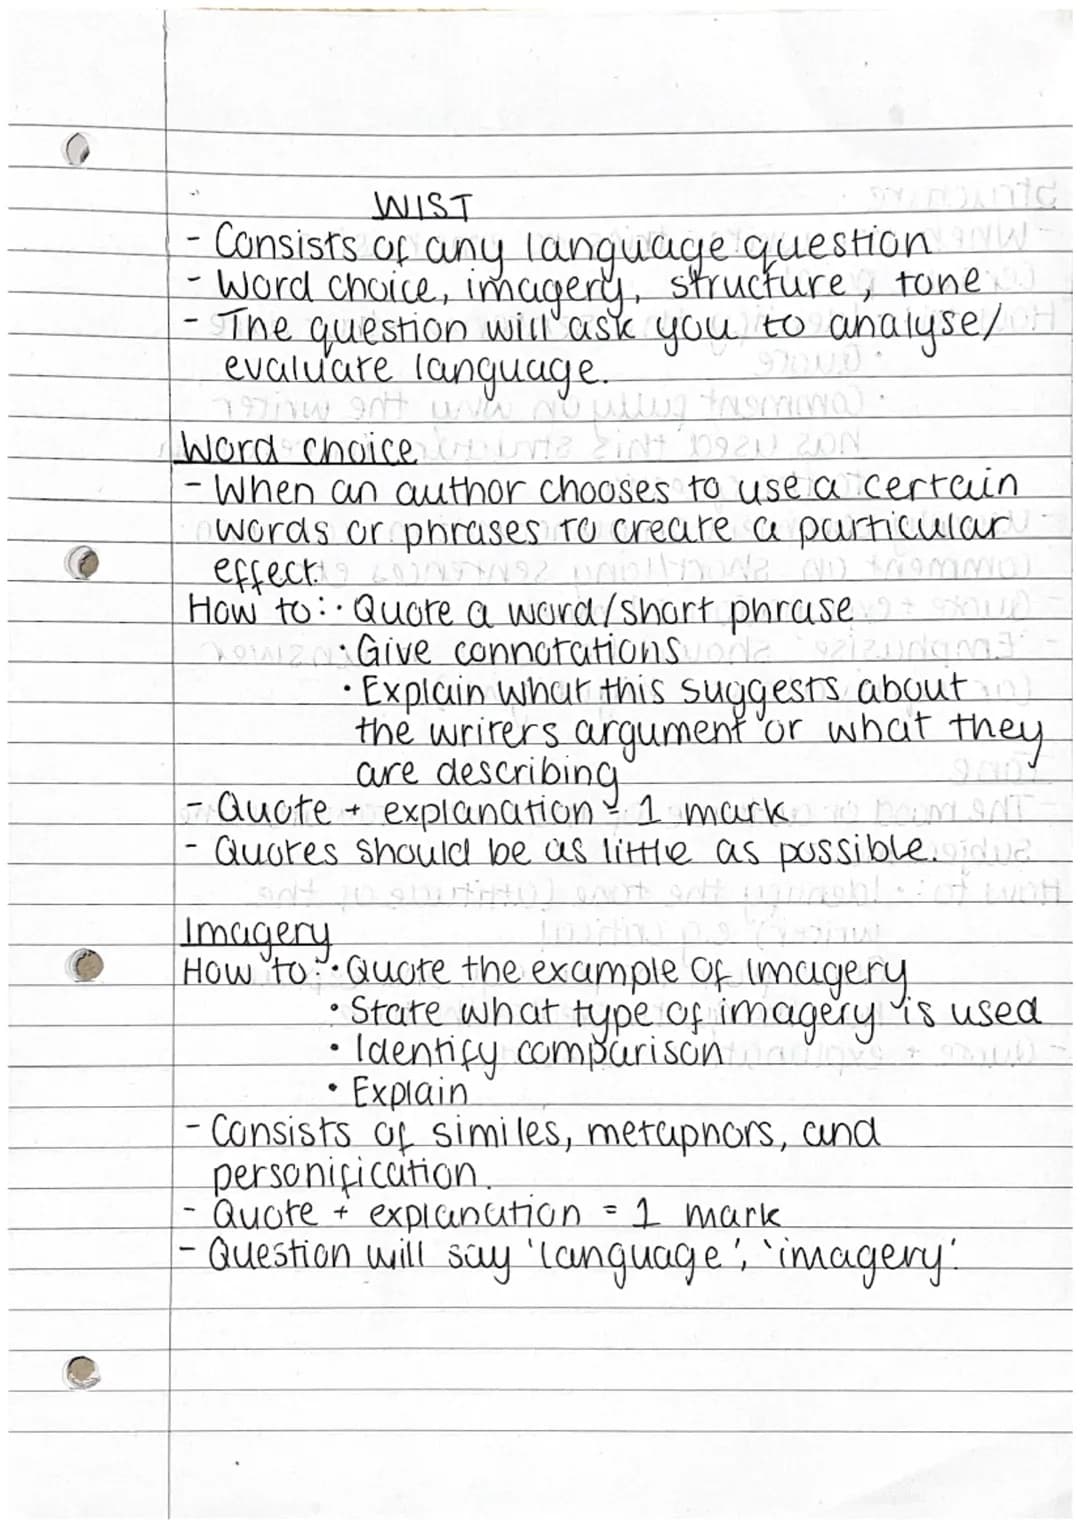 WIST
- Consists of any language question
- Word choice, imagery, structure, tone
- The question will ask you to analyse/
evaluate language.
Word choice
- When an author chooses to use a certain
words or phrases to create a particular
effect.
How to: · Quote a word/short phrase
· Give connotations
· Explain what this suggests about
the writers argument or what they
are describing
- Quote + explanation = 1 mark
- Quotes should be as little as possible.
Imagery
How to: · Quote the example of imagery
· State what type of imagery is used
· Identify comparison
· Explain
- Consists of similes, metaphors, and
personification.
- Quote + explanation = 1 mark
- Question will say 'language', 'imagery'.